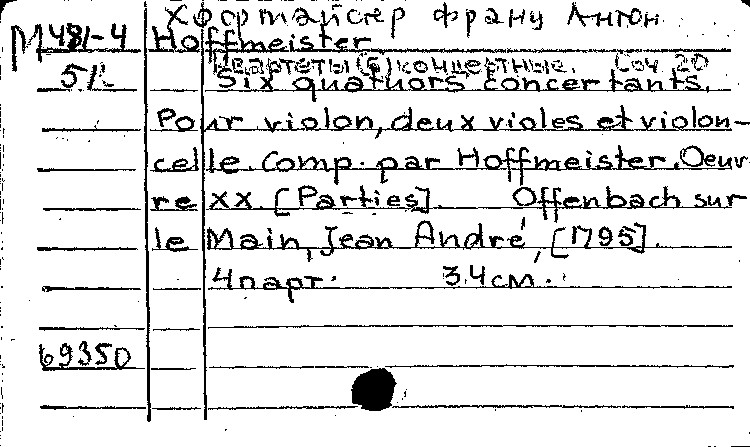 Хофмайстер Франц Антон
М 481-4 Hoffmeister
Квартеты (6) концертные. Соч. 20
Six quatuors concertants.
Pour violon, deux violes et violon-
celle. Comp. par Hoffmeister. Oeuv-
re XX. [Parties]. Offenbach sur
le Main, Jean André, [1795].
4 парт. 34 см.
69350